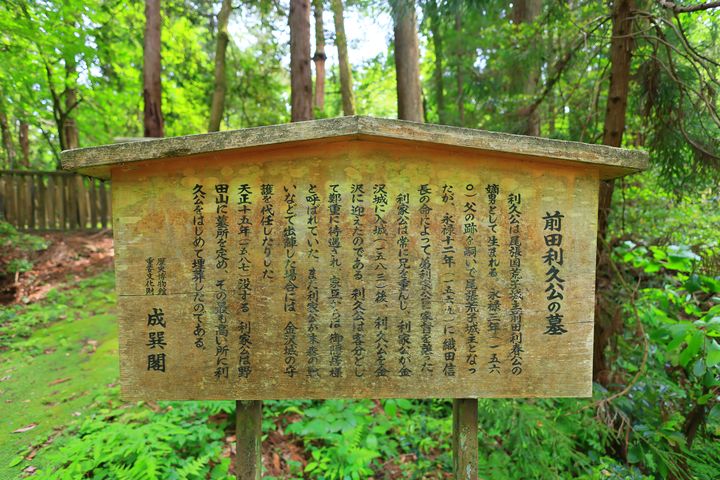 前田利久公の墓
利久公は尾張国荒子城主前田利春公の
嫡男として生まれる。永禄三年(一五六
〇)父の跡を嗣いで尾張荒子城主となっ
たが、永禄十二年(一五六九)に織田信
長の命によって弟利家公に家督を譲った。
利家公は常に兄を重んじ、利家公が金
沢城に入城(一五八三)後、利久公を金
沢に迎えたのである。利久公は客分とし
て鄭重に待遇され、家臣からは御隠居様
と呼ばれていた。また利家公が末森の戦
いなどで出陣した場合には、金沢城の守
護を代行したりした。
天正十五年(一五八七)没する。利家公は野
田山に墓所を定め、その最も高い所に利
久公をはじめて埋葬したのである。
歴史博物館
重要文化財
成巽閣